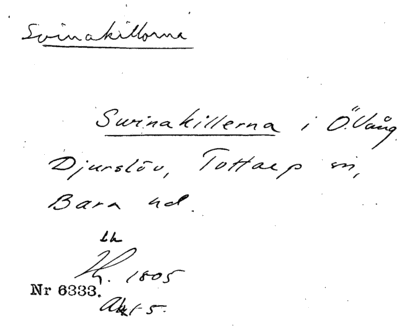 Svinakillorna
Swinakillerna i Ö. Vång
Djurslöv, Tottarp sn,
Bara hd.
Lh
1805
Nr 6333.
Akt 5.